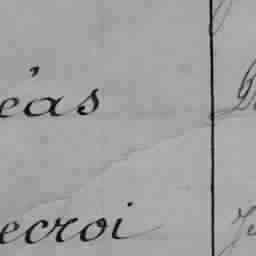 éas
ecroi